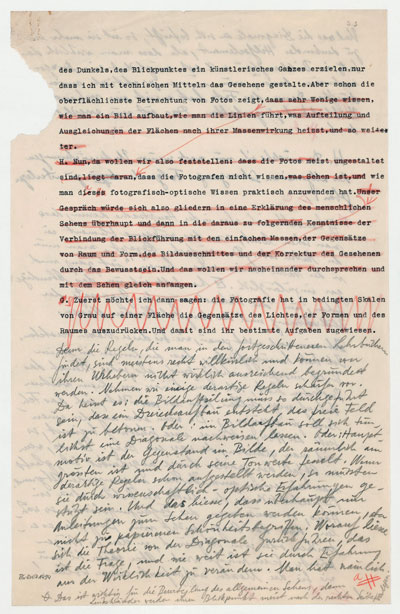 des Dunkels, des Blickpunktes ein künstlerisches Ganzes erzielen, nur
dass ich mit technischen Mitteln das Gesehene gestalte. Aber schon die
oberflächlichste Betrachtung von Fotos zeigt, dass sehr Wenige wissen,
wie man ein Bild aufbaut, wie man die Linien führt, was Aufteilung und
Ausgleichungen der Flächen nach ihrer Massenwirkung heisst, und so weiter
ter.
H. Nun, da wollen wir also feststellen: dass die Fotos meist ungestaltet
sind, liegt daran, dass die Fotografen nicht wissen, was Sehen ist, und wie
man dieses fotografisch-optische Wissen praktisch anzuwenden hat. Unser
Gespräch würde sich also gliedern in eine Erklärung des menschlichen
Sehens überhaupt und dann in die daraus zu folgernden Kenntnisse der
Verbindung der Blickführung mit den einfachen Massen, der Gegensätze
von Raum und Form, des Bildausschnittes und der Korrektur des Gesehenen
durch das Bewusstsein. Und das wollen wir nacheinander durchsprechen und
mit dem Sehen gleich anfangen.
Zuerst möcht ich dann sagen: die Fotografie hat in bedingten Skalen
von Grau auf einer Fläche die Gegensätze des Lichtes, der Formen und des
Raumes auszudrücken. Und damit sind ihr bestimmte Aufgaben zugewiesen.
Denn die Regeln, die man in den fortgeschrittenen Lehrbüchern
findet, sind meistens recht willkürlich und können von
ihren Urhebern nicht wirklich ausreichend begründet
werden. Nehmen wir einige derartige Regeln vor.
Da heisst es: die Bildaufteilung muss so durchgeführt
sein, dass ein Dreiecksaufbau entsteht, das freie Feld
ist zu betonen. Oder: im Bildaufbau soll sich
eine Diagonale nachweisen lassen. Oder:
ist der Gegenstand im Bilde, der
ist und durch seine Tonwerte fesselt. Wenn
derartige Regeln schon aufgestellt werden, so müssten
sie durch wissenschaftlich-optische Erfahrungen ge
stützt sein. Und das hiesse, dass überhaupt nur
Anleitungen zum Sehen gegeben werden können, aber
nicht zu papierenen Schönheitsbegriffen. Worauf liesse
sich die Theorie von der Diagonale zurückführen, das
ist die Frage, und wie weit ist sie durch Erfahrung
aus der Wirklichkeit zu verändern. Man hat nämlich
Das ist wichtig für die des allgemeinen Sehens, denn